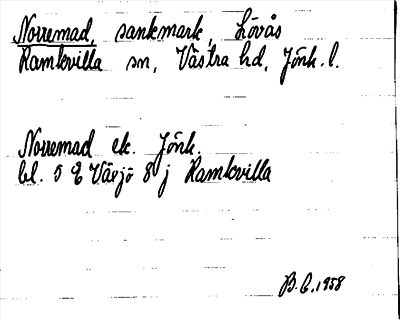 Norremad, sankmark, Lövås
Ramkvilla sn, Västra hd, Jönk. l.
Norremad ek. Jönk.
bl. 5 E Växjö 8 j Ramkvilla
B.E. 1958